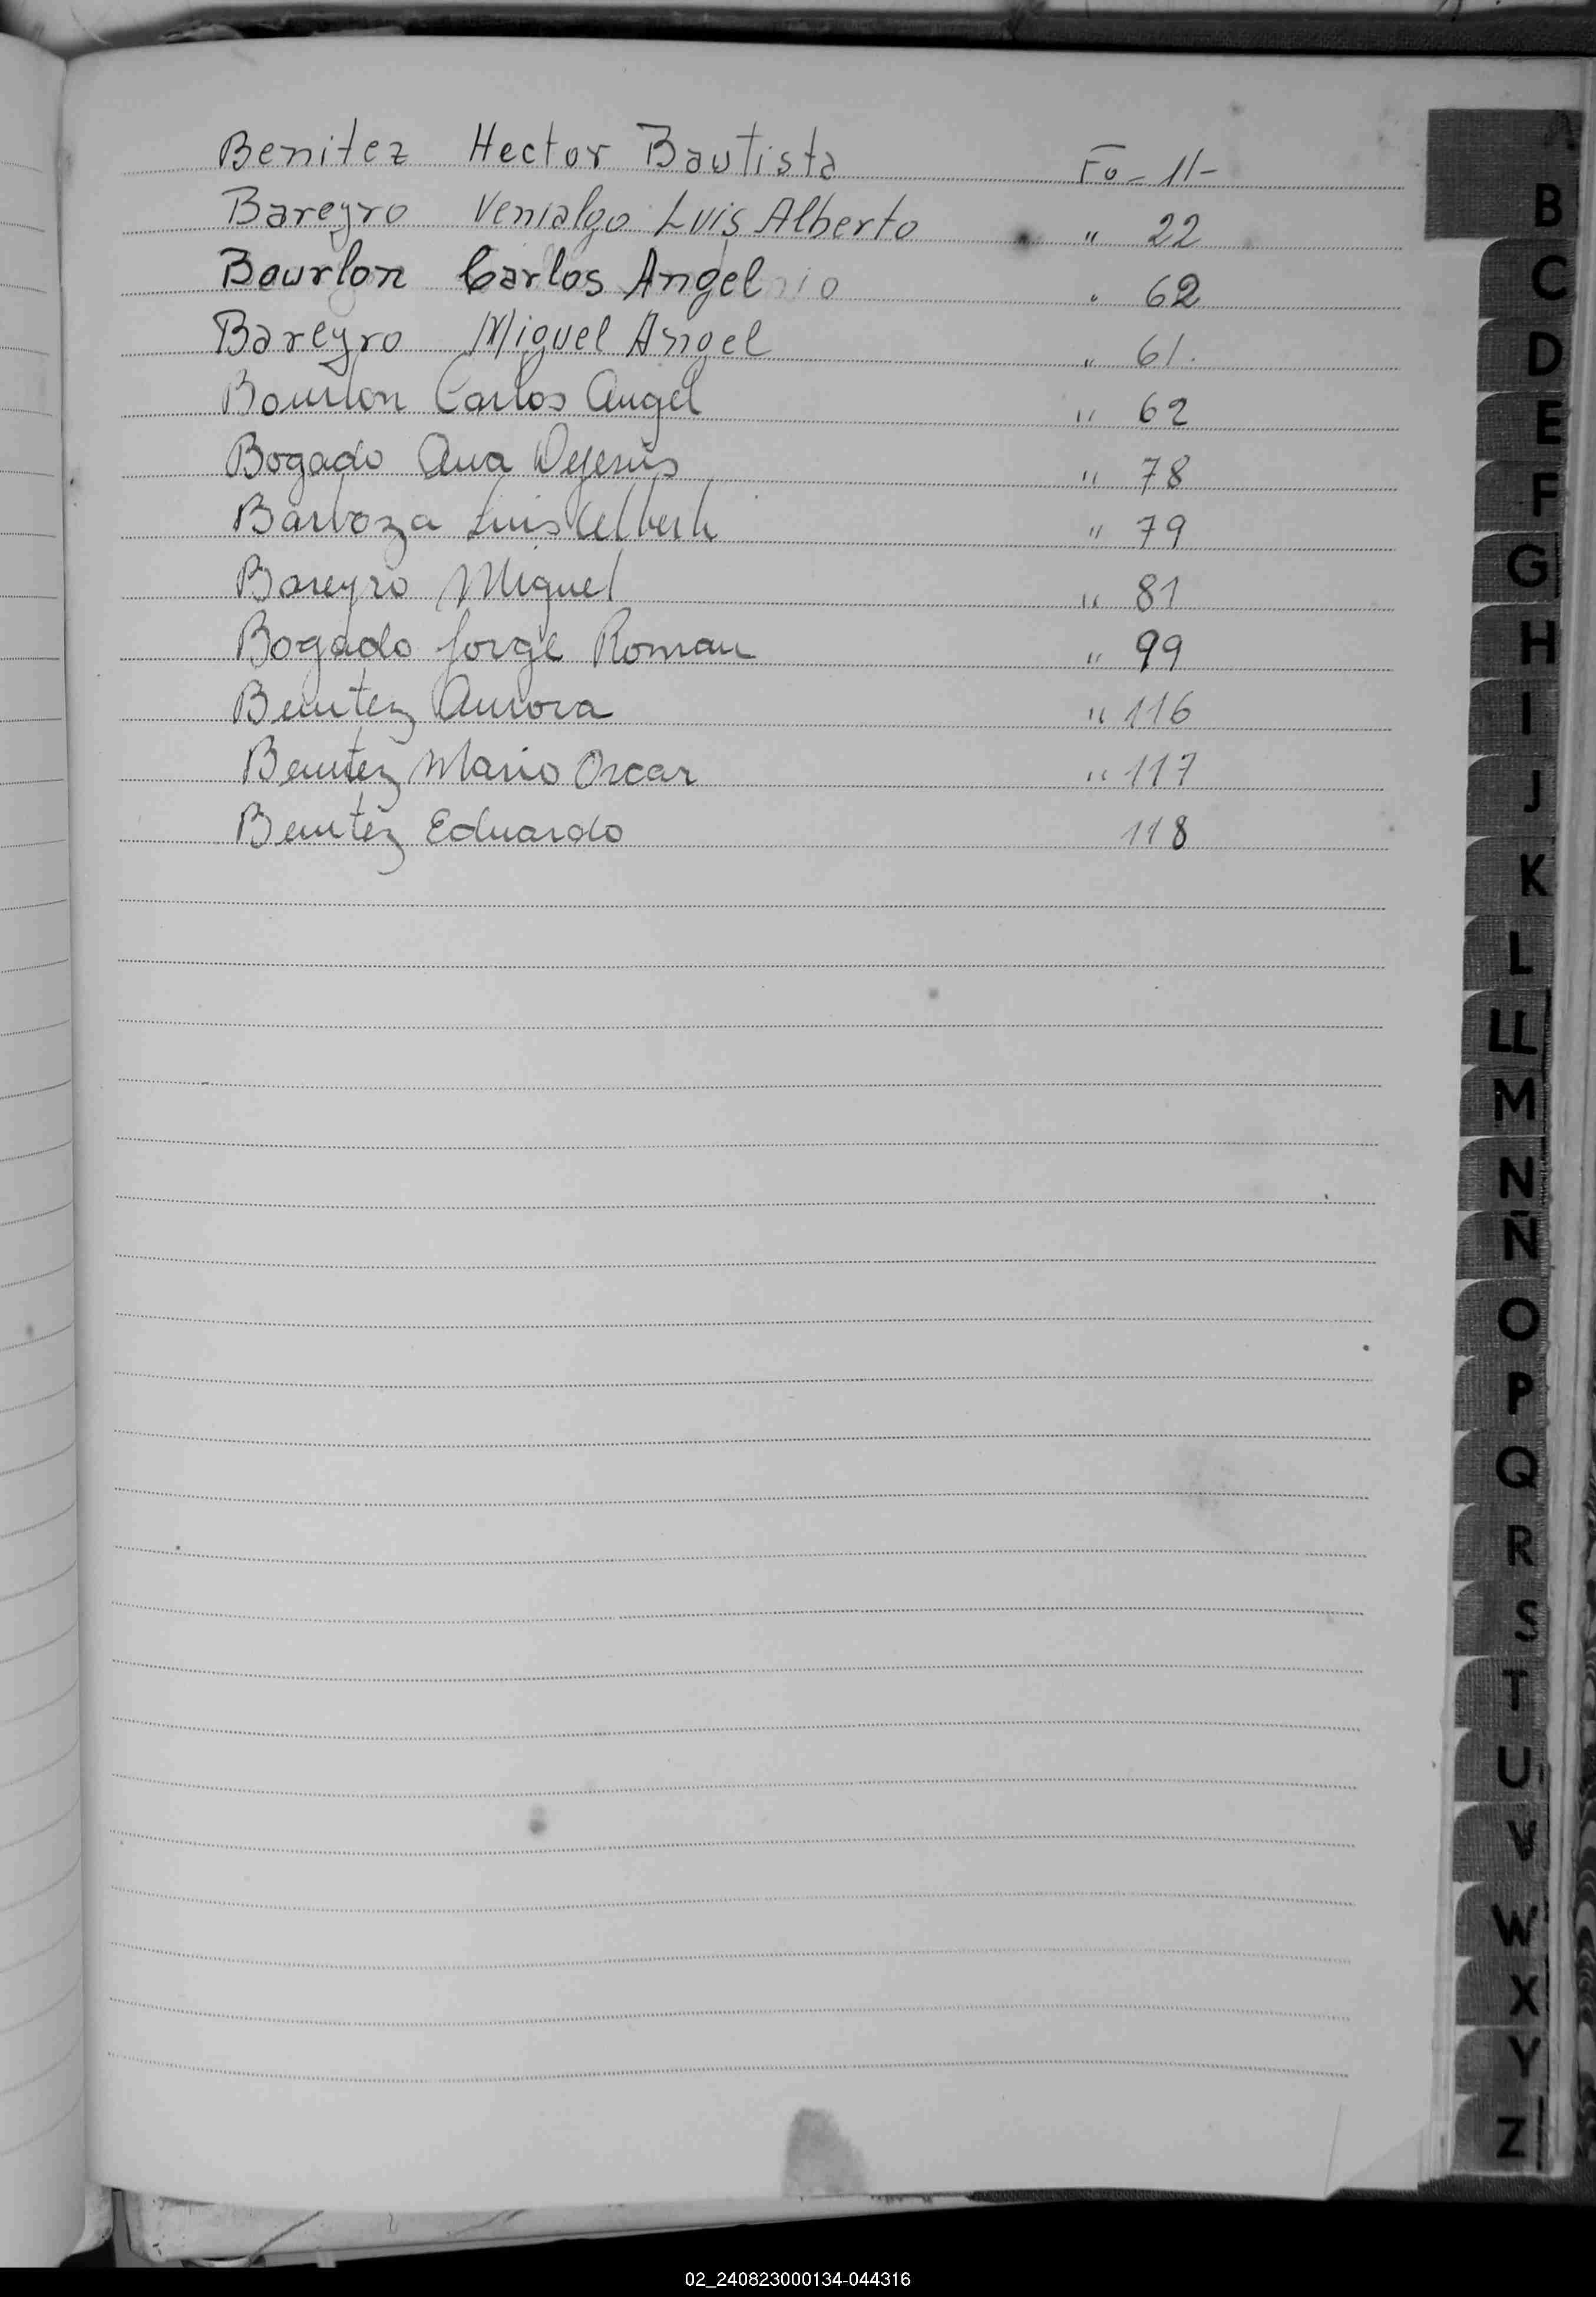 Benitez Hector Bautista Fo - 11 -
Bareyro Venialgo Luis Alberto " 22
Bourlon Carlos Angel " 62
Bareyro Miguel Angel " 61.
Bourlon Carlos Angel " 62
Bogado Ana Dejesús " 78
Barboza Luis Alberto " 79
Bareyro Miguel " 81
Bogado Jorge Roman " 99
Benitez Aurora " 116
Benitez Mario Oscar " 117
Benitez Eduardo 118
B
C
D
E
F
G
H
I
J
K
L
LL
M
N
Ñ
O
P
Q
R
S
T
U
V
W
X
Y
Z
02_240823000134-044316